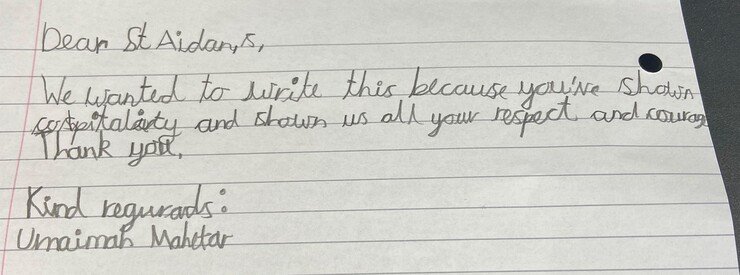 Dear St Aidan,s,
We wanted to write this because you've shown
cospitalaity and shown us all your respect and courage
Thank you.
Kind regurads:
Umaimah Mahetar